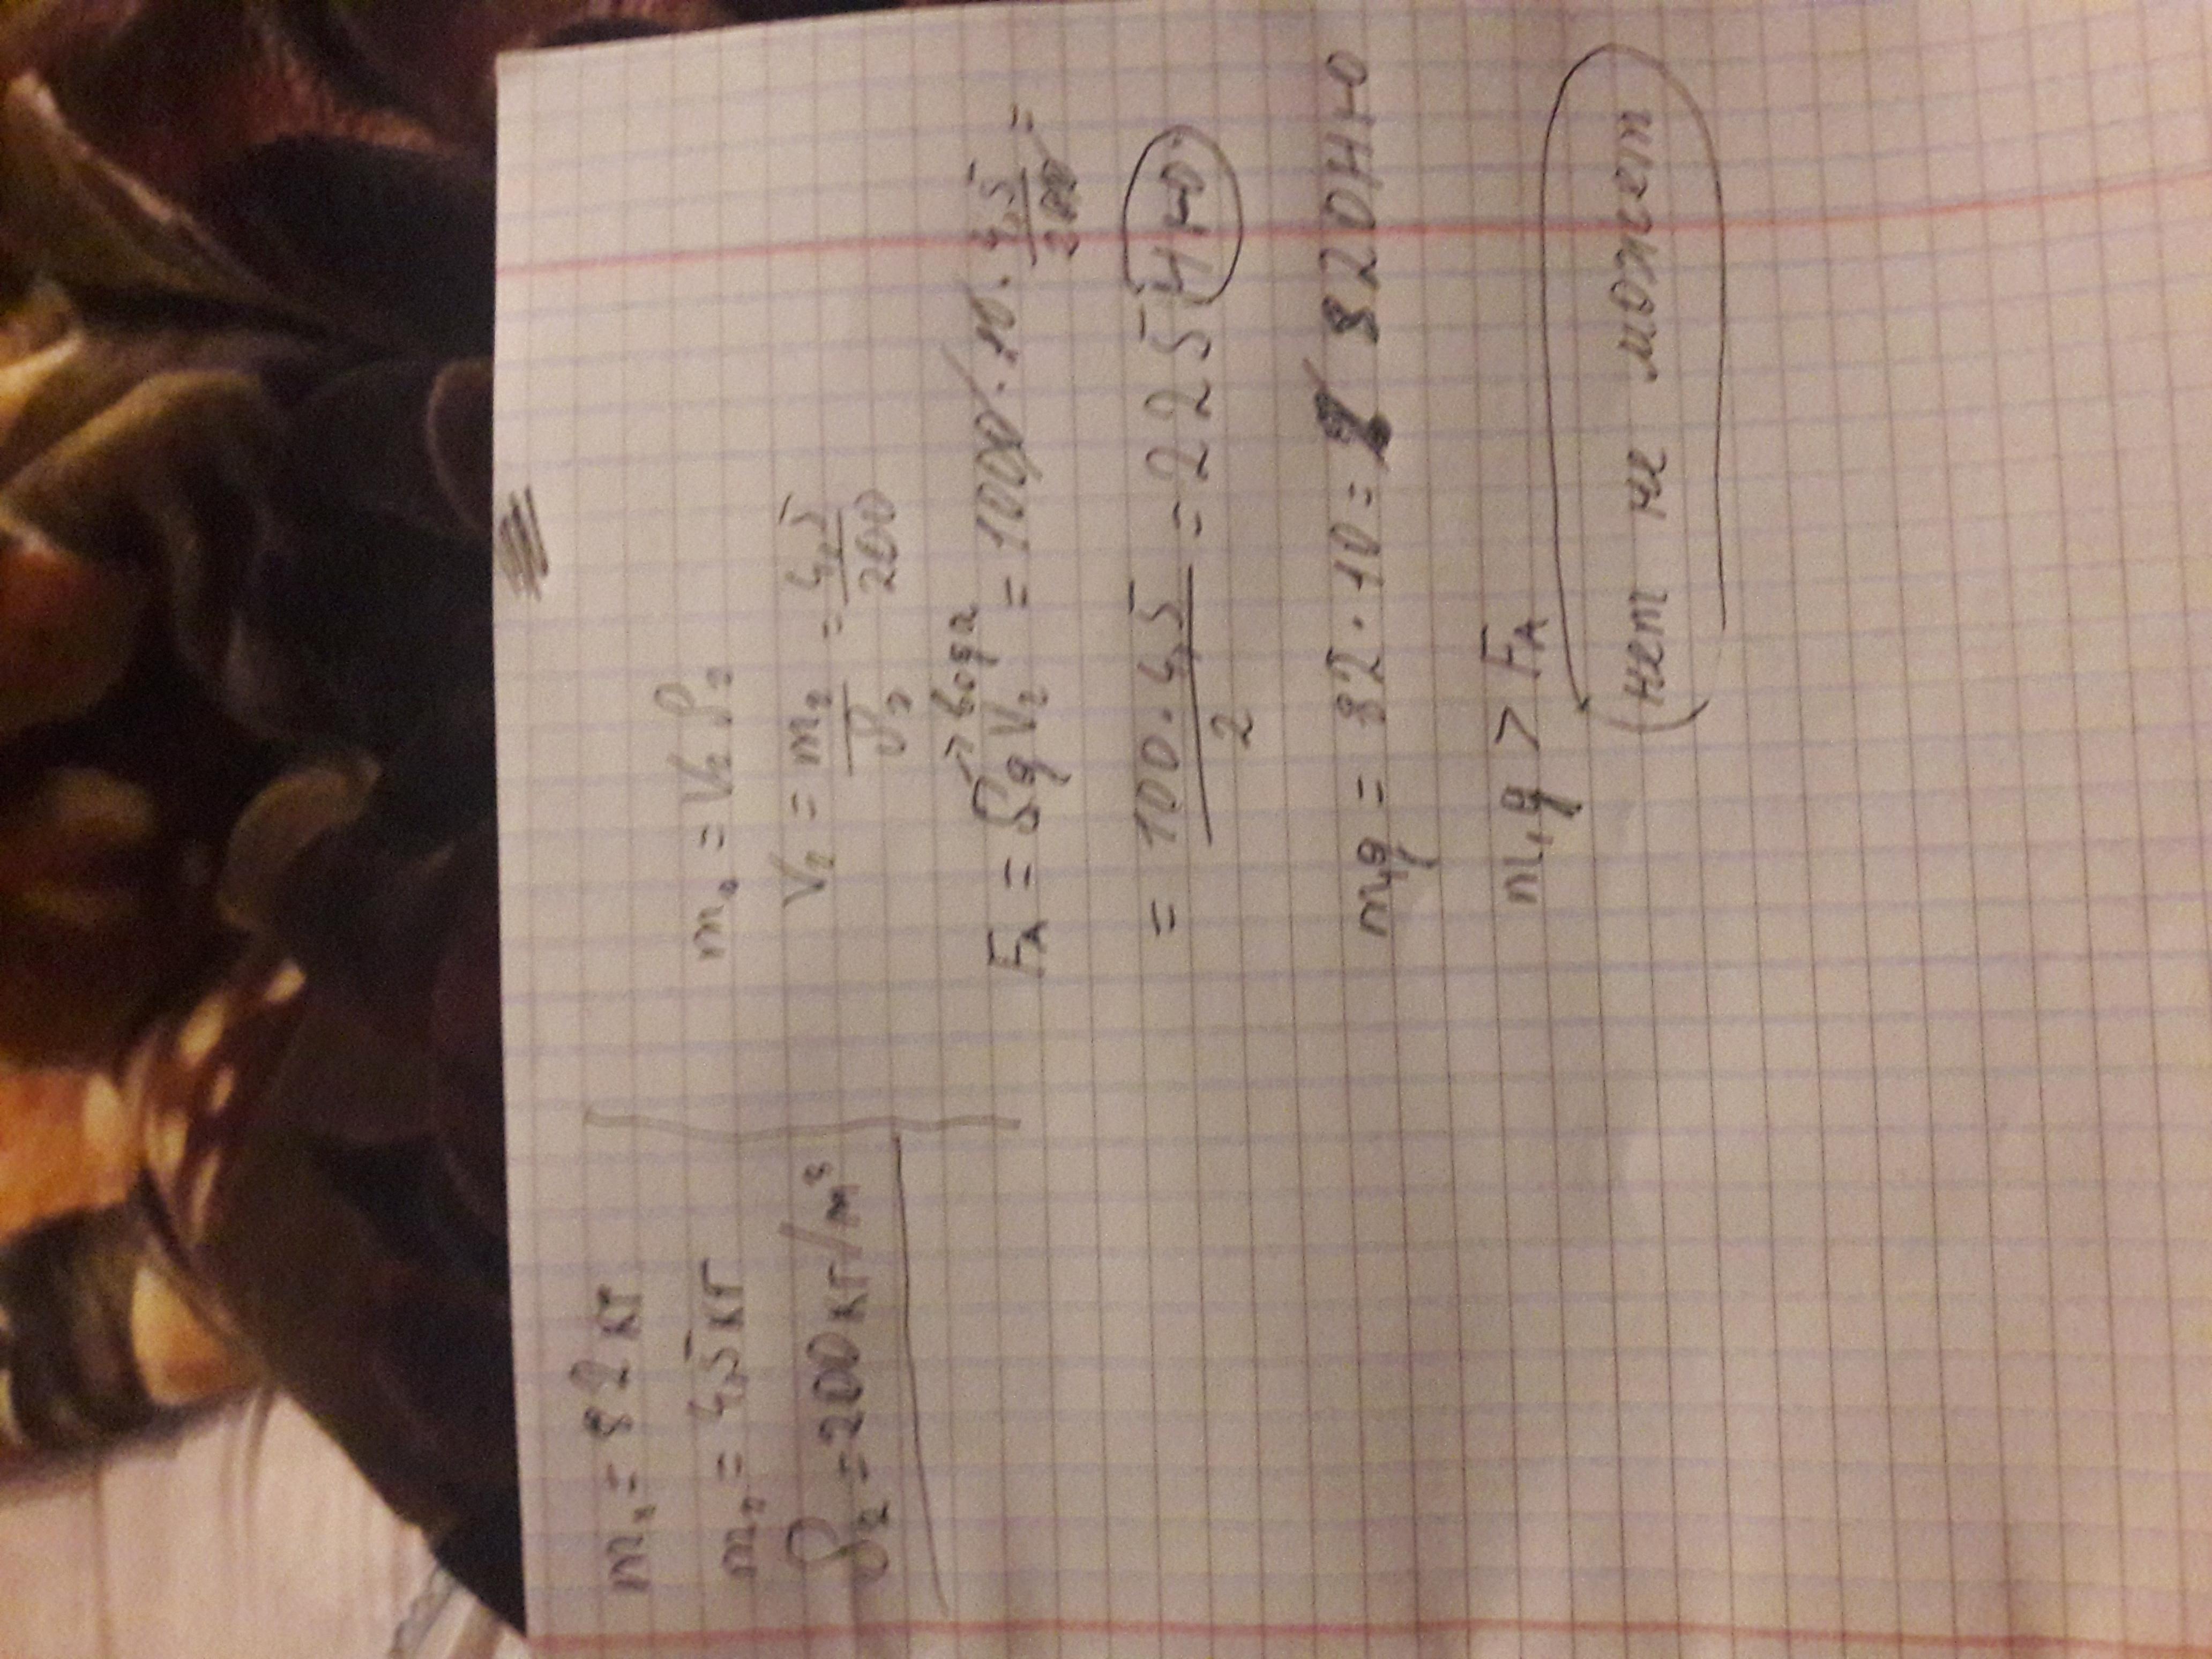 m₁ = 82 кг
m₂ = 4,5 кг
ρ₂ = 200 кг/м³
m₂ = V₂ ρ₂
V₂ = m₂/ρ₂ = 4,5/200
→ вода
F_A = ρ g V₂ = 1000 · 10 · 4,5/200 =
= 100 · 4,5/2 = 225 Нью
m₁g = 82 · 10 = 820 Нью
m₁g > F_A
нет не может